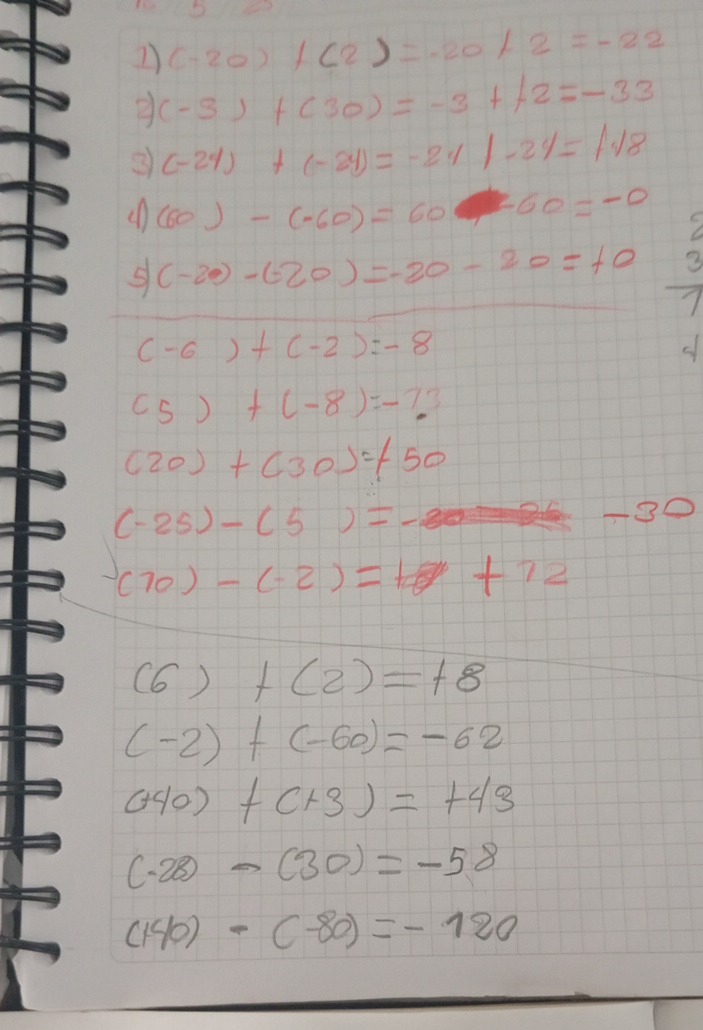 1) (-20) + (2) = -20 + 2 = -22
2) (-3) + (30) = -3 + +2 = -33
3) (-24) + (-24) = -24 + -24 = +48
4) (60) - (-60) = 60 -60 = -0
5) (-20) - (-20) = -20 - 20 = +0
(-6) + (-2) = -8
(5) + (-8) = -13
(20) + (30) = +50
(-25) - (5) = - -30
(70) - (-2) = + 72
(6) + (2) = +8
(-2) + (-60) = -62
(+40) + (+3) = +43
(-28) - (30) = -58
(+40) - (-80) = - 120
2
3
1
4